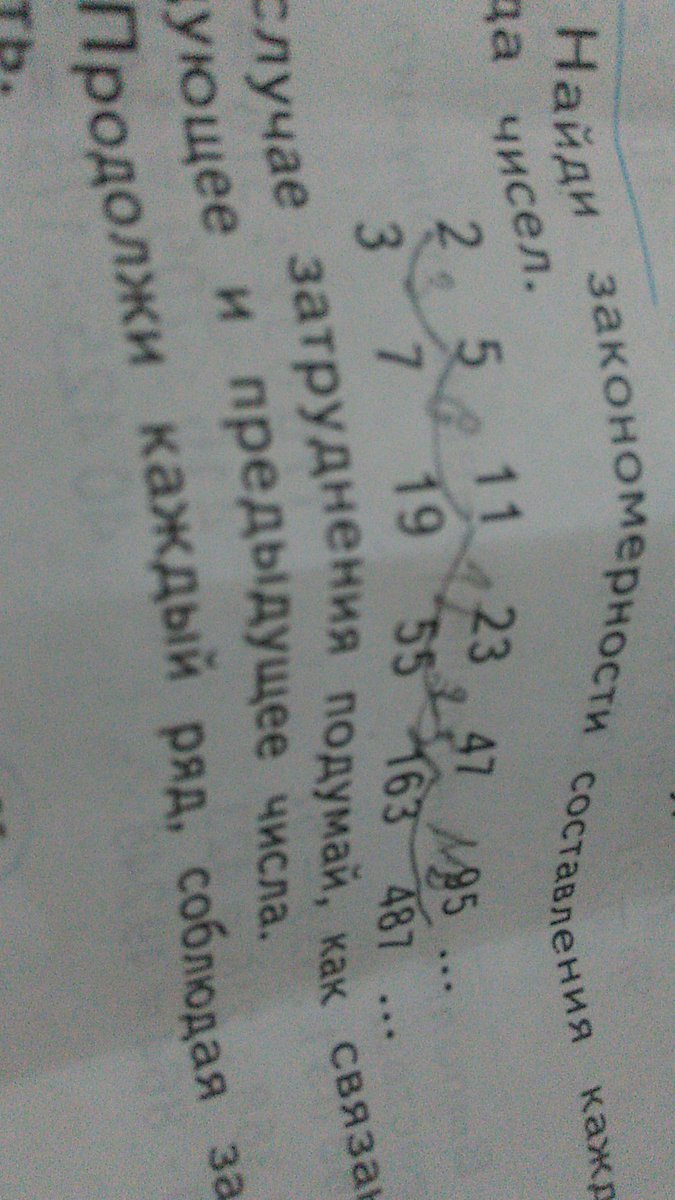 Найди закономерности составления кажд
да чисел.
2 5 11 23 47 95 ...
3 7 19 55 163 487 ...
случае затруднения подумай, как связан
дующее и предыдущее числа.
Продолжи каждый ряд, соблюдая за
ть.